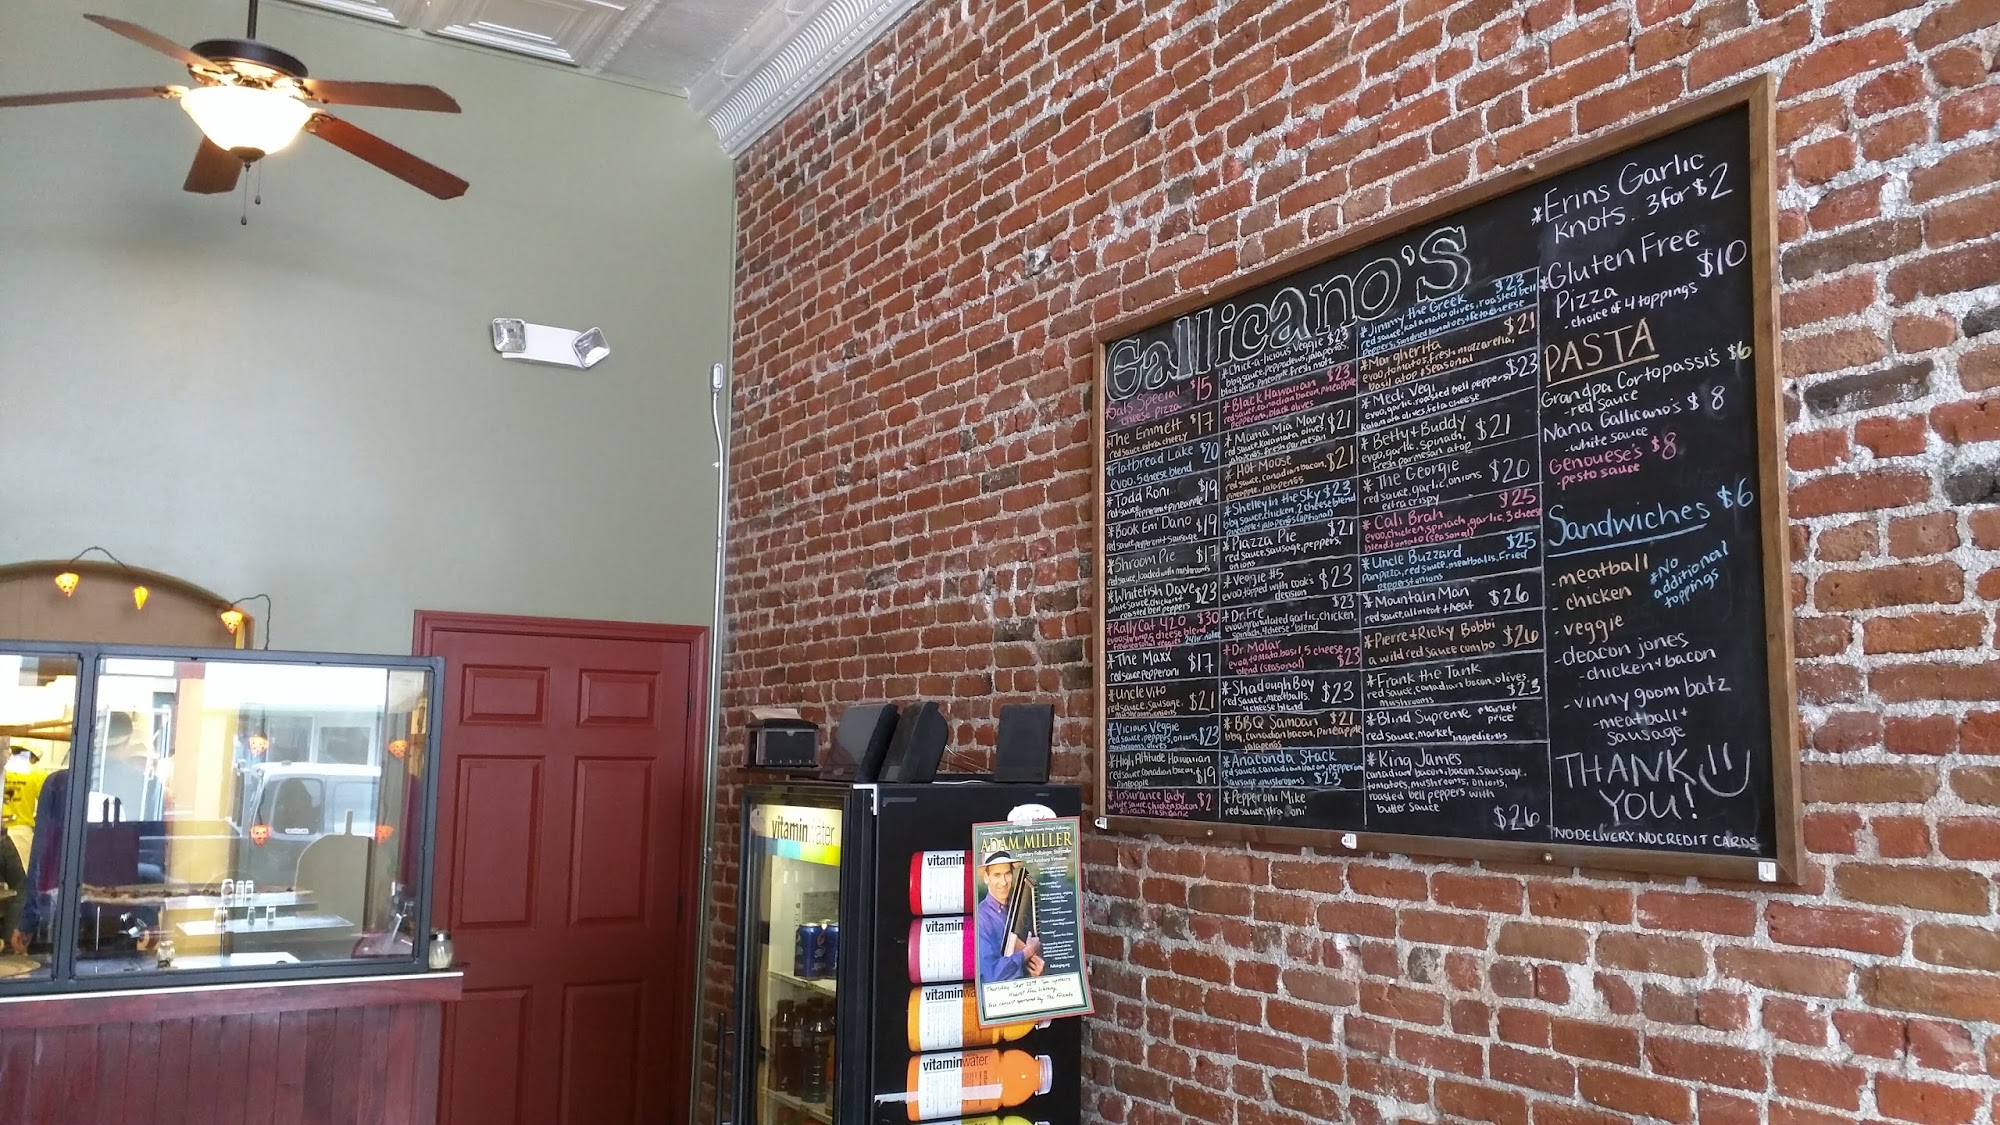 Gallicano's
Sal's Special $15
- cheese pizza
*The Emmett $17
red sauce, extra cheezy
*Flatbread Lake $20
evoo, 5 cheese blend
*Todd Roni $19
red sauce, pepperoni + pineapple
*Book Em Dano $19
red sauce pepperoni + sausage
*Shroom Pie $17
red sauce, loaded with mushrooms
*Whitefish Dave $23
white sauce, chicken +
roasted bell peppers
*Rally Cat 420 $30
*The Maxx $17
red sauce, pepperoni
*Uncle Vito $21
red sauce, sausage,
mushrooms, onions
*Vicious Veggie $23
red sauce, peppers, onions,
mushrooms, olives
*High Altitude Hawaiian $19
red sauce, canadian bacon,
pineapple
*Insurance Lady $2
white sauce, chicken, bacon
*Chick-a-licious Veggie $23
bbq sauce, pepperoncinis, jalapeños,
black olives, pineapple, fresh motz
*Black Hawaiian $23
red sauce, canadian bacon, pineapple
pepperoni, black olives
*Mama Mia Mary $21
red sauce, kalamata olives,
jalapeños, fresh parmesan
*Hot Moose $21
red sauce, canadian bacon,
pineapple, jalapeños
*Shelley In the Sky $23
bbq sauce, chicken, 2 cheese blend
pineapple + jalapeños (optional)
*Piazza Pie $21
red sauce, sausage, peppers,
onions
*Veggie #5 $23
evoo, topped with cook's
decision
*Dr. Fre $23
evoo, granulated garlic, chicken,
spinach, 4 cheese blend
*Dr Mola
evoo, tomato, basil, 5 cheese
blend (seasonal) $23
*Shadough Boy $23
red sauce, meatballs,
4 cheese blend
*BBQ Samoan $21
bbq, canadian bacon, pineapple,
jalapeños
*Anaconda Stack
red sauce, canadian bacon, pepperoni
sausage, mushrooms $23
*Pepperoni Mike
red sauce, xtra roni
*Jimmy the Greek $23
red sauce, kalamata olives, roasted bell
peppers, sundried tomatoes + feta cheese
*Margherita $21
evoo, tomatoes, fresh mozzarella,
basil atop *Seasonal
*Medi Vegi $23
evoo, garlic, roasted bell peppers,
kalamata olives, feta cheese
*Betty + Buddy $21
evoo, garlic, spinach,
fresh parmesan atop
*The Georgie $20
red sauce, garlic, onions
extra crispy
*Cali Brah $25
evoo, chicken, spinach, garlic, 3 cheese
blend, tomato (seasonal)
*Uncle Buzzard $25
pan pizza, red sauce, meatballs, fried
peppers + onions
*Mountain Man $26
red sauce, all meat + heat
*Pierre + Ricky Bobbi $26
a wild red sauce combo
*Frank the Tank
red sauce, canadian bacon, olives,
mushrooms $23
*Blind Supreme market price
red sauce, market ingredients
*King James
canadian bacon, bacon, sausage,
tomatoes, mushrooms, onions,
roasted bell peppers with
butter sauce $26
*Erins Garlic
Knots. 3 for $2
*Gluten Free
Pizza $10
- choice of 4 toppings
PASTA
Grandpa Cortopassi's $6
- red sauce
Nana Gallicano's $8
- white sauce
Genouese's $8
- pesto sauce
Sandwiches $6
- meatball
- chicken
- veggie
*No
additional
toppings
- deacon jones
- chicken + bacon
- vinny goom batz
- meatball +
sausage
THANK
YOU!
NO DELIVERY. NO CREDIT CARDS
vitaminwater
vitamin
vitaminw
vitaminw
vitaminwater
ADAM MILLER
Legendary Folksinger, Storyteller
and Autoharp Virtuoso
Thursday, Sept 22nd 7pm upstairs
Hearst Free Library
free concert sponsored by The Friends